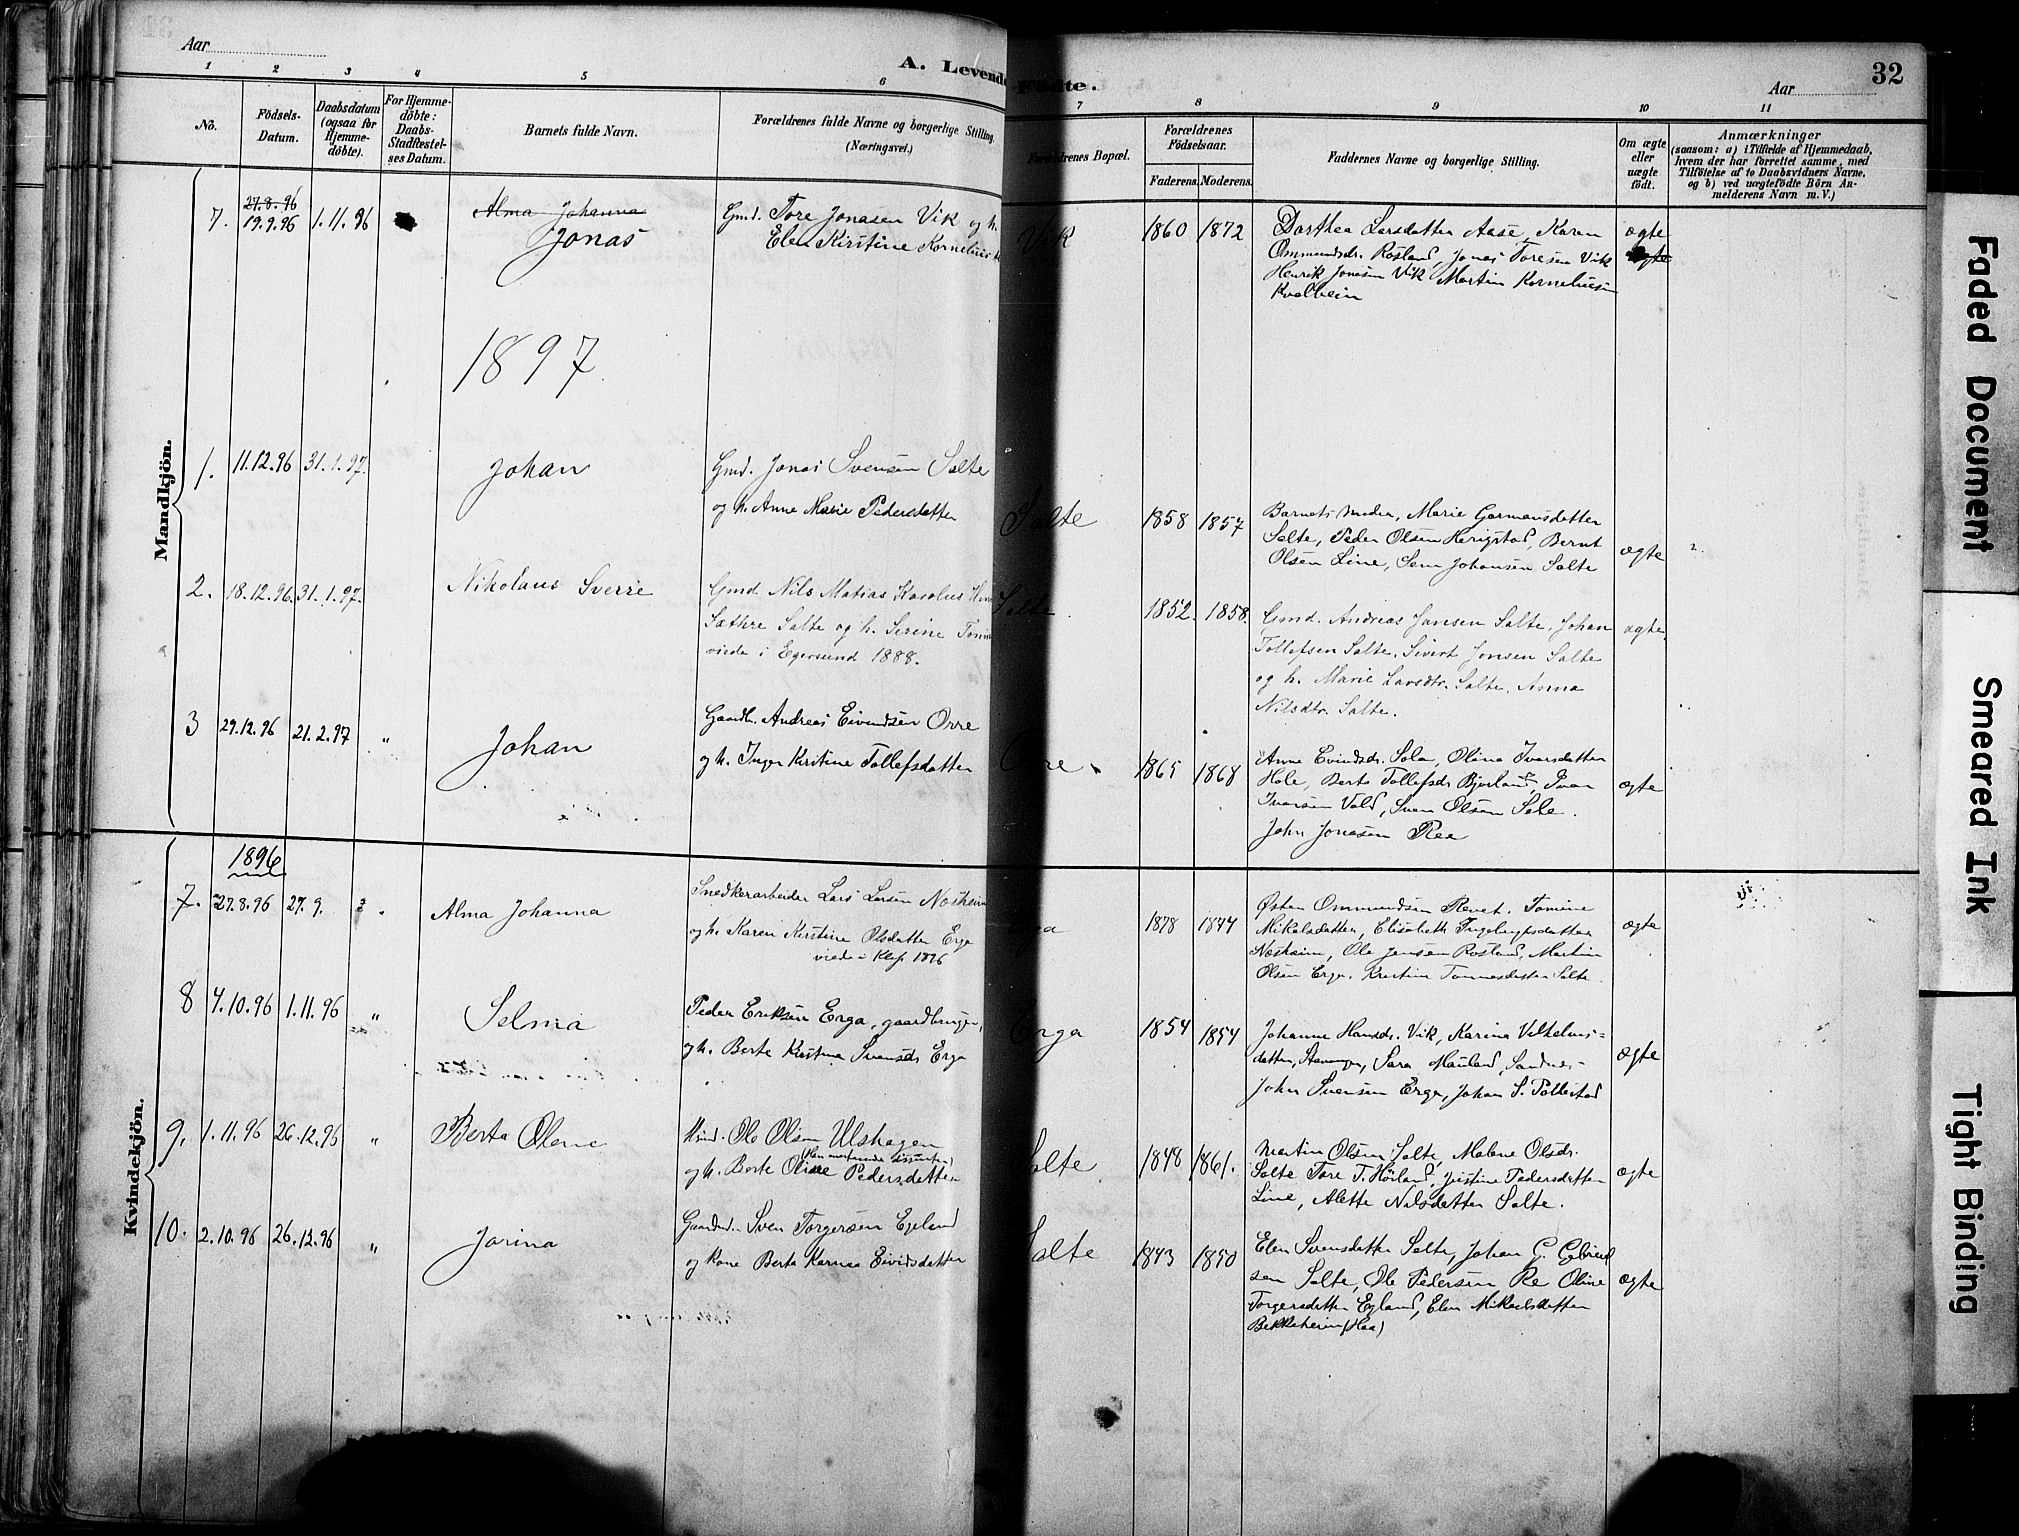 Aar
A. Levende Födte.
Aar
32
1 2 3 4 5 6 7 8 9 10 11
No.
Födsels-
Datum.
Daabsdatum
(ogsaa for
Hjemme-
döbte).
For Hjemme-
döbte:
Daabs-
Stadfæstel-
ses Datum.
Barnets fulde Navn.
Forældrenes fulde Navne og borgerlige Stilling.
(Næringsvei.)
Forældrenes Bopæl.
Forældrenes
Födselsaar.
Faderens. Moderens.
Faddernes Navne og borgerlige Stilling.
Om ægte
eller
uægte
födt.
Anmærkninger
(saasom: a) i Tilfælde af Hjemmedaab,
hvem der har forrettet samme, med
Tilföielse af to Daabsvidners Navne,
og b) ved uægtefödte Börn An-
melderens Navn m. V.)
Mandkjön.
7. 27.8.96
19.9.96 1.11.96
Alma Johanna
Jonas
Gmd. Tore Jonasen Vik og h.
Elen Kirstine Kornelius
Vik
1860 1872
Dorthea Larsdatter Aase, Karen
Ommundsdr. Rosland, Jonas Toresen Vik
Henrik Jonasen Vik Martin Korneliusen
Kvalbein
ægte
1897
1. 11.12.96 31.1.97.
Johan
Gmd. Jonas Svensen Salte
og h. Anne Marie Pedersdatter
Salte
1858 1857
Barnets moder, Marie Gormansdatter
Salte, Peder Olsen Herigstad, Bernt
Olsen Line, Sem Johansen Salte
ægte
2. 18.12.96. 31.1.97.
Nikolaus Sverre
Gmd. Nils Matias Karolus
Sæthre Salte og h. Serine
viede i Egersund 1888.
Salte
1852. 1858.
Gmd. Andreas Jansen Salte, Johan
Tollefsen Salte, Sivert Jonsen Salte
og h. Marie Larsdtr. Salte, Anna
Nilsdtr. Salte.
ægte.
3 29.12.96 21.2.97 "
Johan
Gaardb. Andreas Eivindsen Orre
og h. Inger Kirstine Tollefsdatter
Orre
1865 1868
Anne Evindsdr. Sola, Olina Ivarsdatter
Hole, Berta Tollefsdr Bjorland, Ivar
Ivarsen Vold, Sven Olsen Sele.
John Jonasen Ree
ægte
Kvindekjön.
1896
7. 27.8.96 27.9. "
Alma Johanna
Snedkerarbeider Lars Larsen Nosheim
og h. Karen Kirstine Olsdatter Erga
viede i Klep 1896
1878 1844
Østen Ommundsen Revet. Tomine
Mikalsdatter, Elisabeth Ingebrigtsdatter
Nosheim, Ole Jensen Rosland, Martin
Olsen Erga. Kristine Tonnesdatter Salte
ægte
8 4.10.96 1.11.96 "
Selma
Peder Eriksen Erga, gaardbruger,
og h. Berte Kristina Svensdr Erga
Erga
1854 1854
Johanne Hansdr. Vik, Karina Vilhelms-
datter, Stavanger, Sara Hauland, Sandnes-
John Svensen Erga, Johan S. Tollestad
ægte
9. 1.11.96 26.12.96 "
Berta Olene
Ole Olsen Ulshagen
og h. Berte Oline Pedersdatter
Salte
1848 1861.
Martin Olsen Salte, Malene Olsdr.
Salte Tore T. Hörland, Justine Pedersdatter
Line, Alette Nilsdatter Salte.
ægte
10. 2.10.96 26.12.96 "
Jorina
Gaardm. Sven Torgersen Egeland
og kone Berta Karina Eividsdatter
Salte
1843 1850
Elen Svensdatter Salte, Johan G. Gabriel
sen Salte, Ole Pedersen Re Oline
Torgersdatter Egland, Elen Mikaelsdatter
Bekkeheim (Haa)
ægte
Faded Document
Smeared Ink
Tight Binding